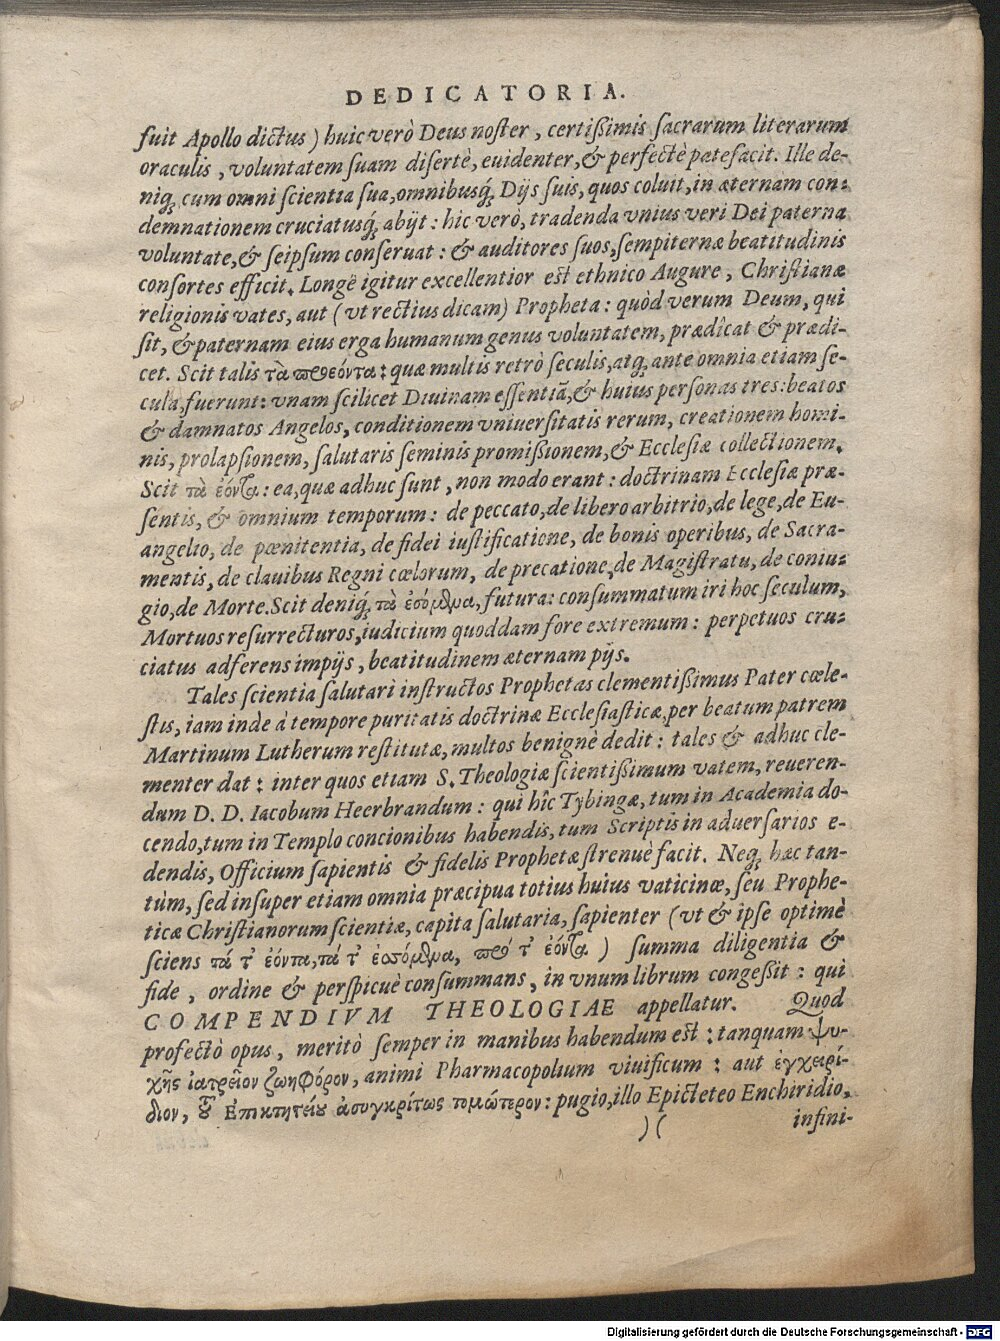 DEDICATORIA.
fuit Apollo dictus) huic verò Deus noster, certißimis sacrarum literarum
oraculis, voluntatem suam disertè, euidenter, & perfectè patefacit. Ille de-
niq; cum omni scientia sua, omnibusq́; Dijs suis, quos coluit, in æternam con-
demnationem cruciatusq́; abijt: hic verò, tradenda vnius veri Dei paterna
voluntate, & seipsum conseruat: & auditores suos, sempiternæ beatitudinis
consortes efficit. Longè igitur excellentior est ethnico Augure, Christianæ
religionis vates, aut (vt rectius dicam) Propheta: quòd verum Deum, qui
sit, & paternam eius erga humanum genus voluntatem, prædicat & prædi-
cet. Scit talis τὰ προεόντα: quæ multis retrò seculis, atq; ante omnia etiam se-
cula, fuerunt: vnam scilicet Diuinam essentiã, & huius personas tres: beatos
& damnatos Angelos, conditionem vniuersitatis rerum, creationem homi-
nis, prolapsionem, salutaris seminis promißionem, & Ecclesiæ collectionem.
Scit τὰ ἐόντα: ea, quæ adhuc sunt, non modo erant: doctrinam Ecclesiæ præ-
sentis, & omnium temporum: de peccato, de libero arbitrio, de lege, de Eu-
angelio, de pœnitentia, de fidei iustificatione, de bonis operibus, de Sacra-
mentis, de clauibus Regni cœlorum, de precatione, de Magistratu, de coniu-
gio, de Morte. Scit deniq́; τὰ ἐσόμενα, futura: consummatum iri hoc seculum,
Mortuos resurrecturos, iudicium quoddam fore extremum: perpetuos cru-
ciatus adferens impijs, beatitudinem æternam pijs.
Tales scientia salutari instructos Prophetas clementißimus Pater cœle-
stis, iam inde à tempore puritatis doctrinæ Ecclesiasticæ, per beatum patrem
Martinum Lutherum restitutæ, multos benignè dedit: tales & adhuc cle-
menter dat: inter quos etiam S. Theologiæ scientißimum vatem, reueren-
dum D. D. Iacobum Heerbrandum: qui hîc Tybingæ, tum in Academia do-
cendo, tum in Templo concionibus habendis, tum Scriptis in aduersarios e-
dendis, Officium sapientis & fidelis Prophetæ strenuè facit. Neq; hæc tan-
tùm, sed insuper etiam omnia præcipua totius huius vaticinæ, seu Prophe-
ticæ Christianorum scientiæ, capita salutaria, sapienter (vt & ipse optimè
sciens τά τ᾽ ἐόντα, τά τ᾽ ἐσόμενα, πρό τ᾽ ἐόντα) summa diligentia &
fide, ordine & perspicuè consummans, in vnum librum congeßit: qui
COMPENDIVM THEOLOGIAE appellatur. Quod
profectò opus, meritò semper in manibus habendum est: tanquam ψυ-
χῆς ἰατρεῖον ζωηφόρον, animi Pharmacopolium viuificum: aut ἐγχειρί-
διον, τοῦ Ἐπικτητείου ἀσυγκρίτως τομώτερον: pugio, illo Epicteteo Enchiridio,
)( infini-
Digitalisierung gefördert durch die Deutsche Forschungsgemeinschaft - DFG